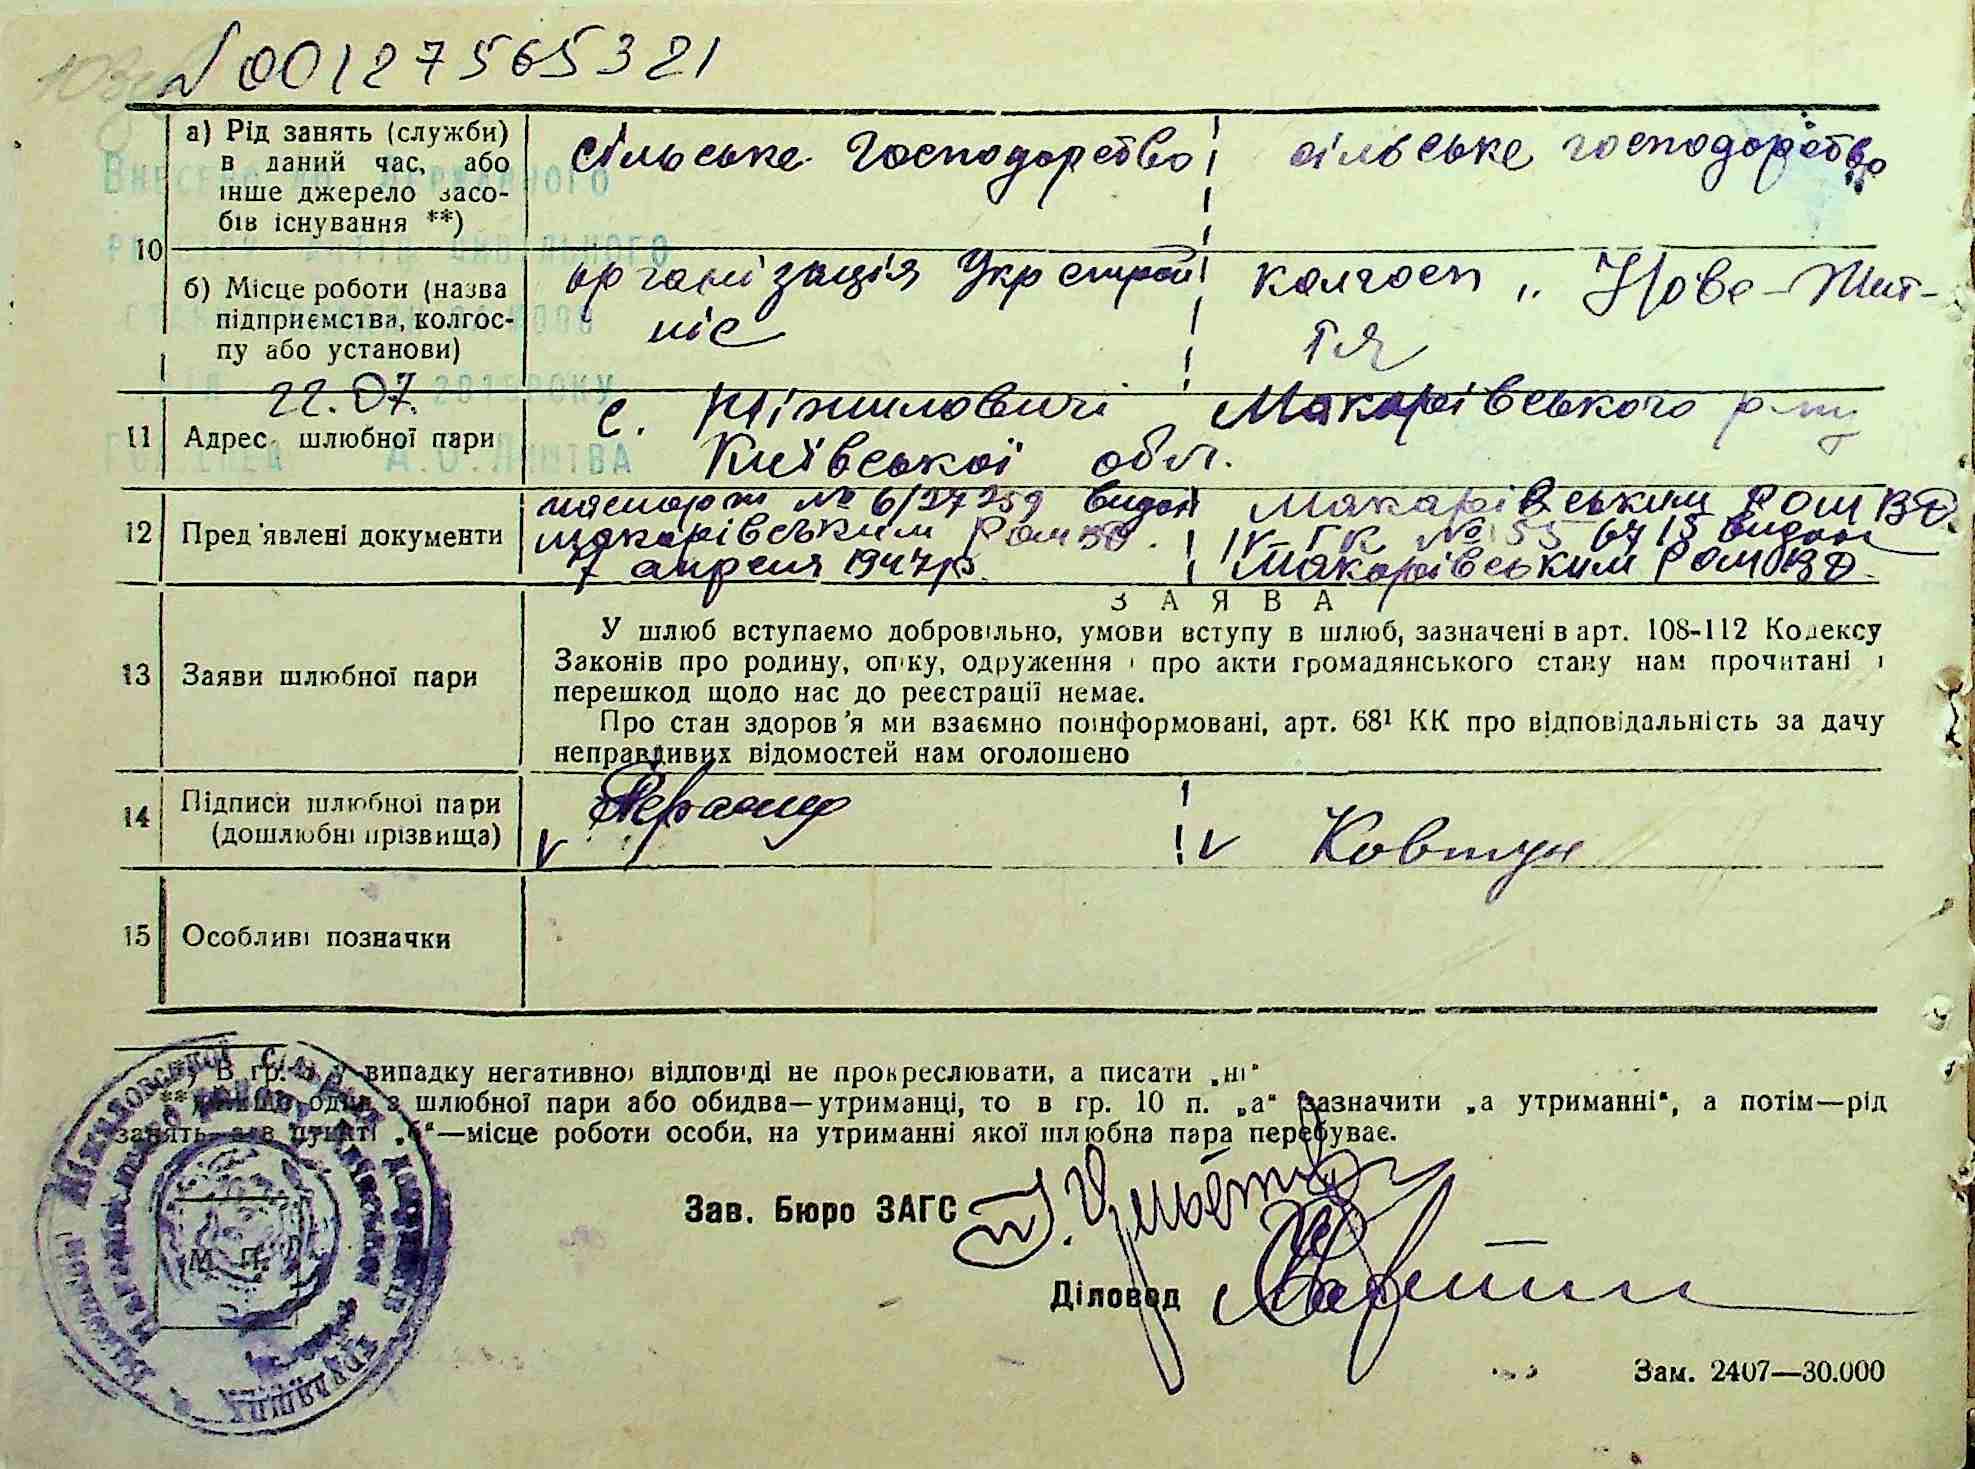 N 00127565321
а) Рід занять (служби) в даний час, або інше джерело засобів існування **)
сільське господорство
сільське господорство
10
б) Місце роботи (назва підприємства, колгоспу або установи)
організація Укрстрой
ніс
колгосп „Нове-Жит-
тя
22.07.
11 Адрес шлюбної пари
с. Ніжиловичі Макарівського р-ну
Київської обл.
12 Пред'явлені документи
паспорт № 6/37259 видан
Макарівським РОМВД.
7 апреля 1947р.
Макарівським РОМ ВД.
№ 55 6415 видан
Макарівським РОМВД.
ЗАЯВА
13 Заяви шлюбної пари
У шлюб вступаємо добровільно, умови вступу в шлюб, зазначені в арт. 108-112 Кодексу
Законів про родину, опіку, одруження і про акти громадянського стану нам прочитані і
перешкод щодо нас до реєстрації немає.
Про стан здоров'я ми взаємно поінформовані, арт. 68¹ КК про відповідальність за дачу
неправдивих відомостей нам оголошено
14 Підписи шлюбної пари
(дошлюбні прізвища)
V
V Ковтун
15 Особливі позначки
випадку негативної відповіді не прокреслювати, а писати „ні"
з шлюбної пари або обидва—утриманці, то в гр. 10 п. „а" зазначити „а утриманні", а потім—рід
занять, а в пункті „б"—місце роботи особи, на утриманні якої шлюбна пара перебуває.
Зав. Бюро ЗАГС
М. П.
Діловод
Зам. 2407—30.000